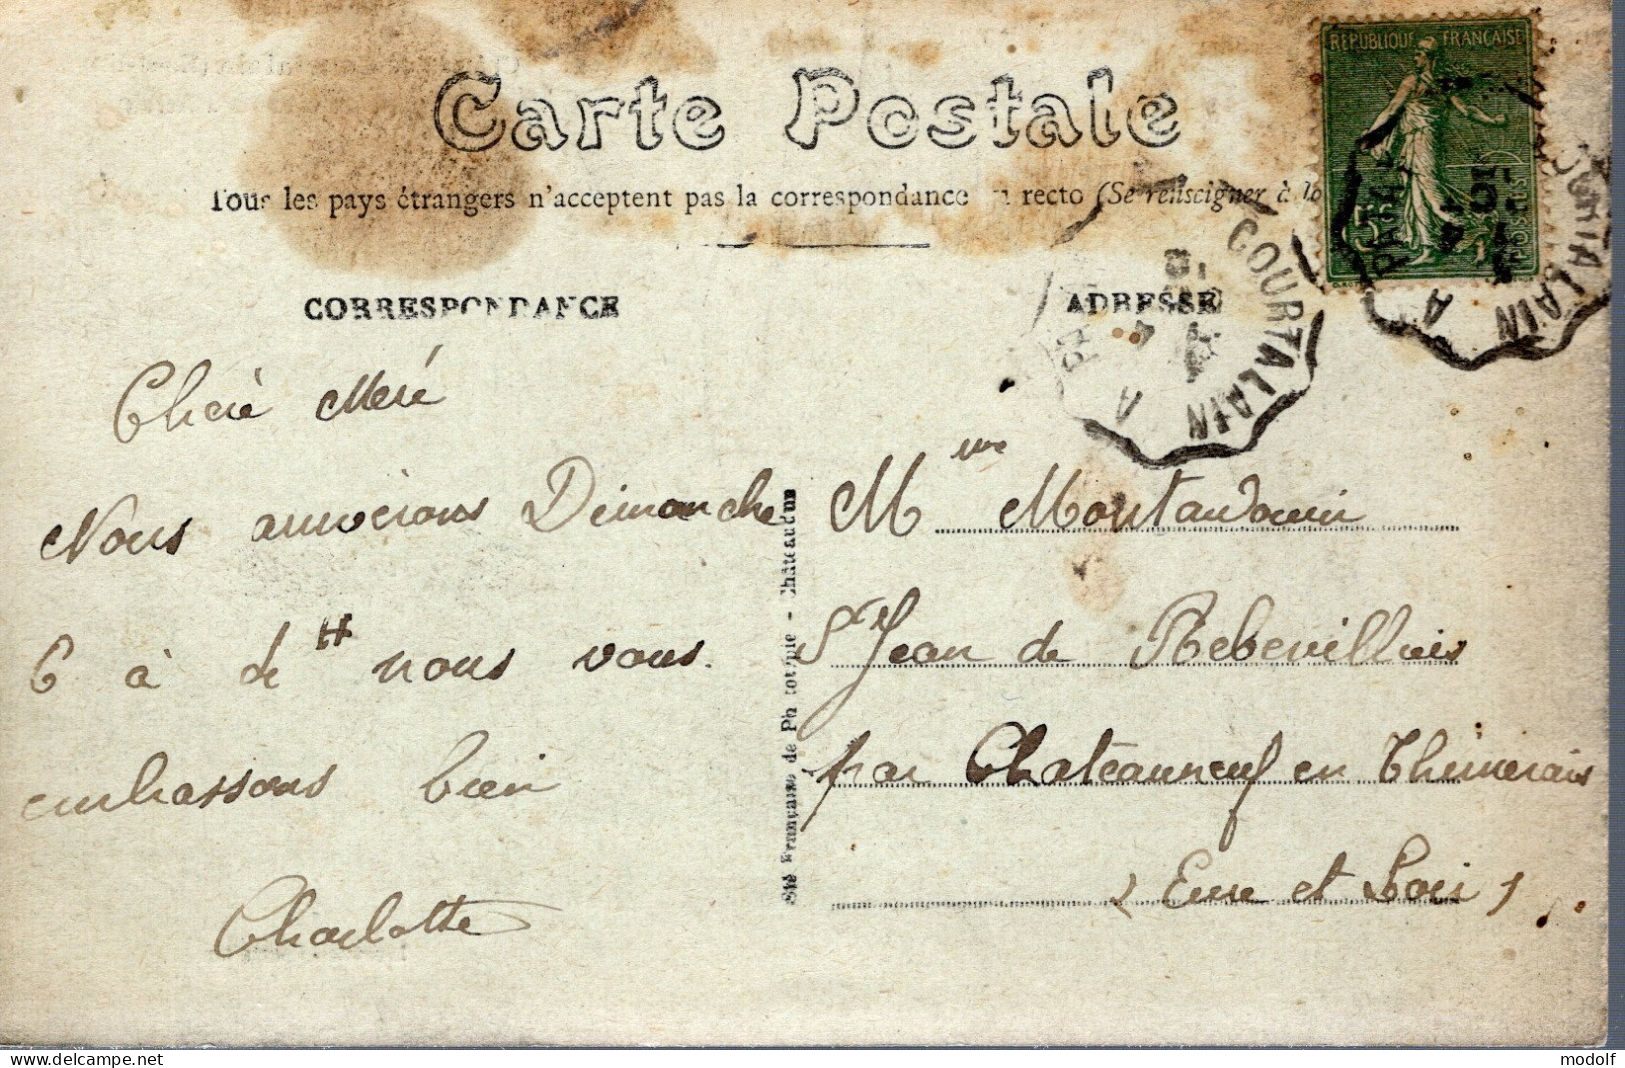 Carte Postale
Tous les pays étrangers n'acceptent pas la correspondance au recto (Se renseigner à la
REPUBLIQUE FRANÇAISE
15c
POSTES
COURTALAIN A
COURTALAIN A
CORRESPONDANCE
ADRESSE
Chere Mere
Nous arriverons Dimanche
6 à de H nous vous
embrassons bien
Charlotte
Sté Française de Phototypie - Châteaudun
Mme Montandouin
St Jean de Rebervilliers
par Chateauneuf en Thimerais
(Eure et Loir)
delcampe.net
modolf